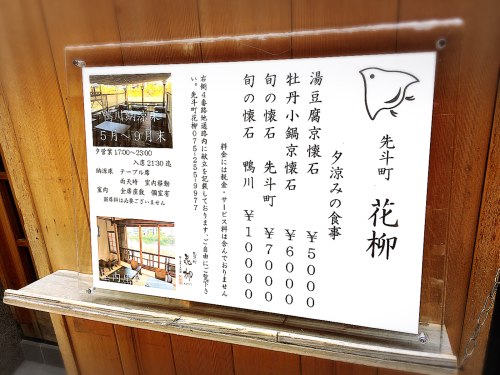 先斗町 花柳
夕涼みの食事
湯豆腐京懐石 ￥5000
牡丹小鍋京懐石 ￥6000
旬の懐石 先斗町 ￥7000
旬の懐石 鴨川 ￥10000
料金には税金・サービス料は含んでおりません
右側4番路地通路内に献立を記載しております。ご自由にご覧下さ
い。先斗町花柳075-255-9977
鴨川納涼床
5月～9月末
夕営業17:00～23:00
入店21:30迄
納涼床 テーブル席
雨天時 室内移動
室内 全席座敷 個室有
室内
花柳